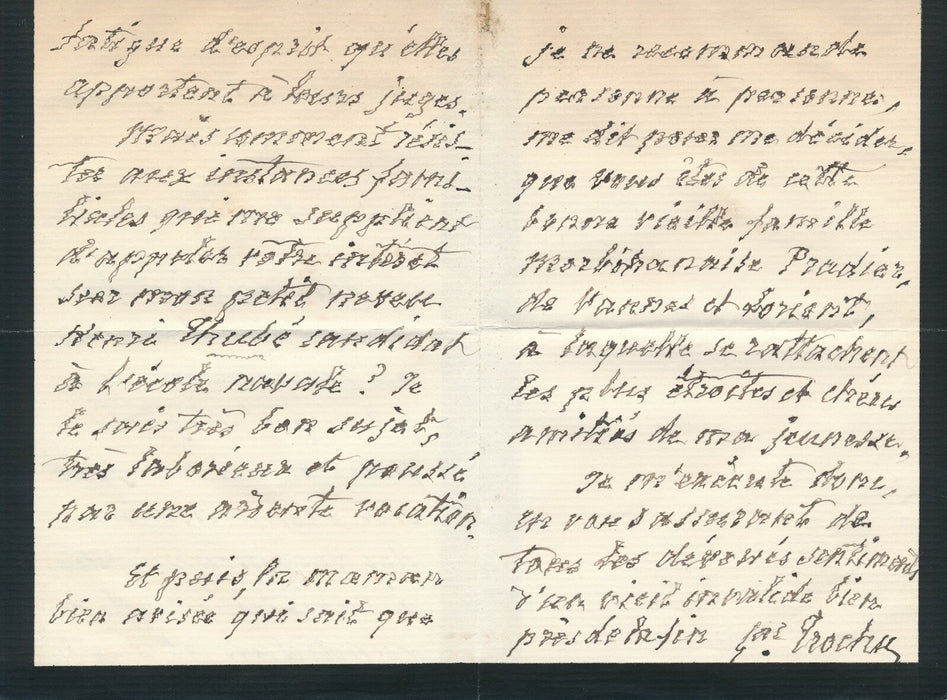 fatigue d'esprit qu'elles
apportent à leurs juges.
Mais comment résis_
ter aux instances fami_
liales qui me supplient
d'appeler votre intérêt
sur mon petit neveu
Henri Thubé candidat
à l'école navale ? Je
le sais très bon sujet,
très laborieux et poussé
par une ardente vocation.
Et puis, la maman
bien avisée qui sait que
je ne recommande
personne à personne,
me dit pour me décider,
que vous êtes de cette
bonne vieille famille
morbihanaise Pradier,
de Vannes et Lorient,
à laquelle se rattachent
les plus étroites et chères
amitiés de ma jeunesse.
Je m'exécute donc,
en vous assurant de
tous les dévoués sentiments
d'un vieil invalide bien
près de la fin gal Trochu